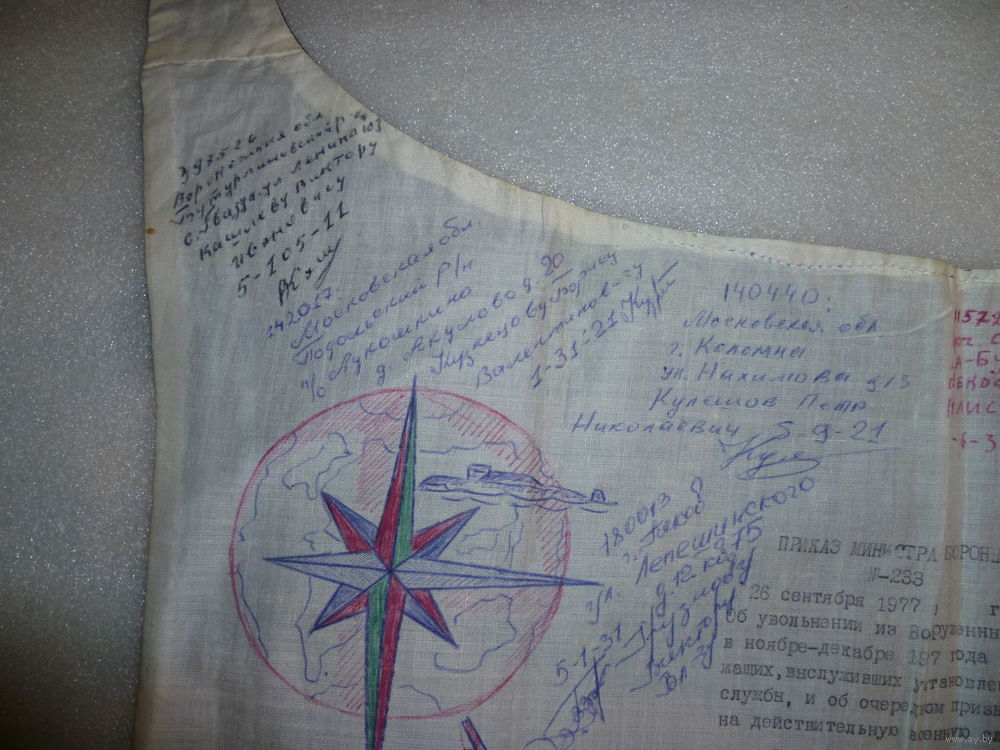 397526
Воронежская обл
Бутурлиновский р-он
с. Гвазда ул Ленина 103
Кашлеву Виктору
Ивановичу
5-105-11
142017.
Московская обл.
Подольский р/н
п/о Лукошкино
д Акулово д. 20
Кузнецову Борису
Валентиновичу
1-31-21
140440.
Московская обл
г. Коломна
ул. Нахимова
Кулешов Петр
Николаевич 5-9-21
180013
г. Псков
ул. Лепешинского
д. 12 кв 75
Виктору
5-1-31
ПРИКАЗ МИНИСТРА ОБОРОН
№-233
26 сентября 1977
Об увольнении из Воруженны
в ноябре-декабре 197 года
жащих, выслуживших установлен
службы, и об очередном призы
на действительную военую
www.ay.by